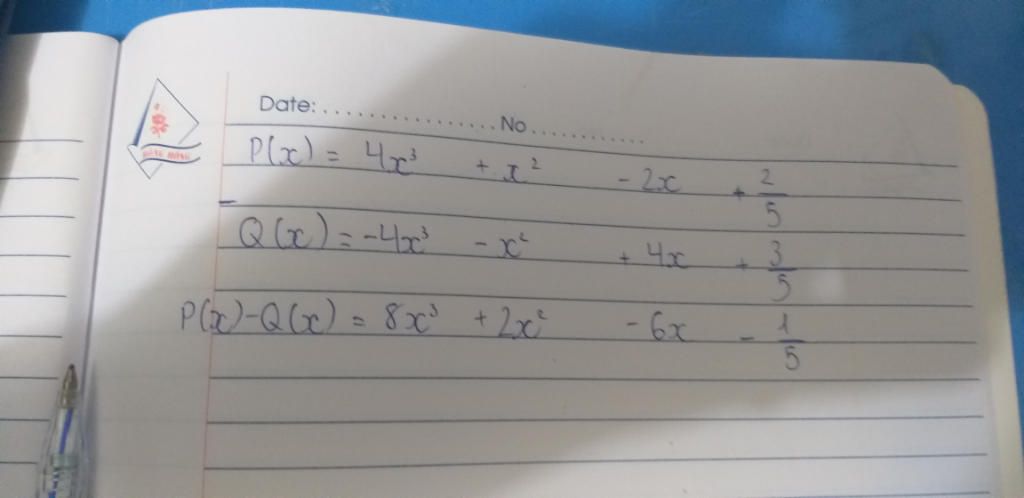 Date:.................No...........
P(x) = 4x³ + x² - 2x + 2/5
-
Q(x) = -4x³ - x² + 4x + 3/5
P(x)-Q(x) = 8x³ + 2x² - 6x - 1/5